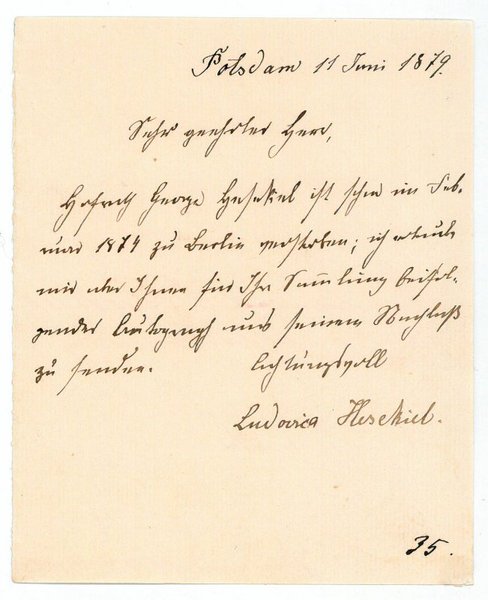 Potsdam 11 Juni 1879.
Sehr geehrter Herr,
Hofrath George Hesekiel ist schon im Feb-
ruar 1874 zu Berlin verstorben; ich erlaube
mir aber Ihnen für Ihre Sammlung beifol-
gendes Autograph aus seinem Nachlaß
zu senden.
Achtungsvoll
Ludovica Hesekiel.
35.